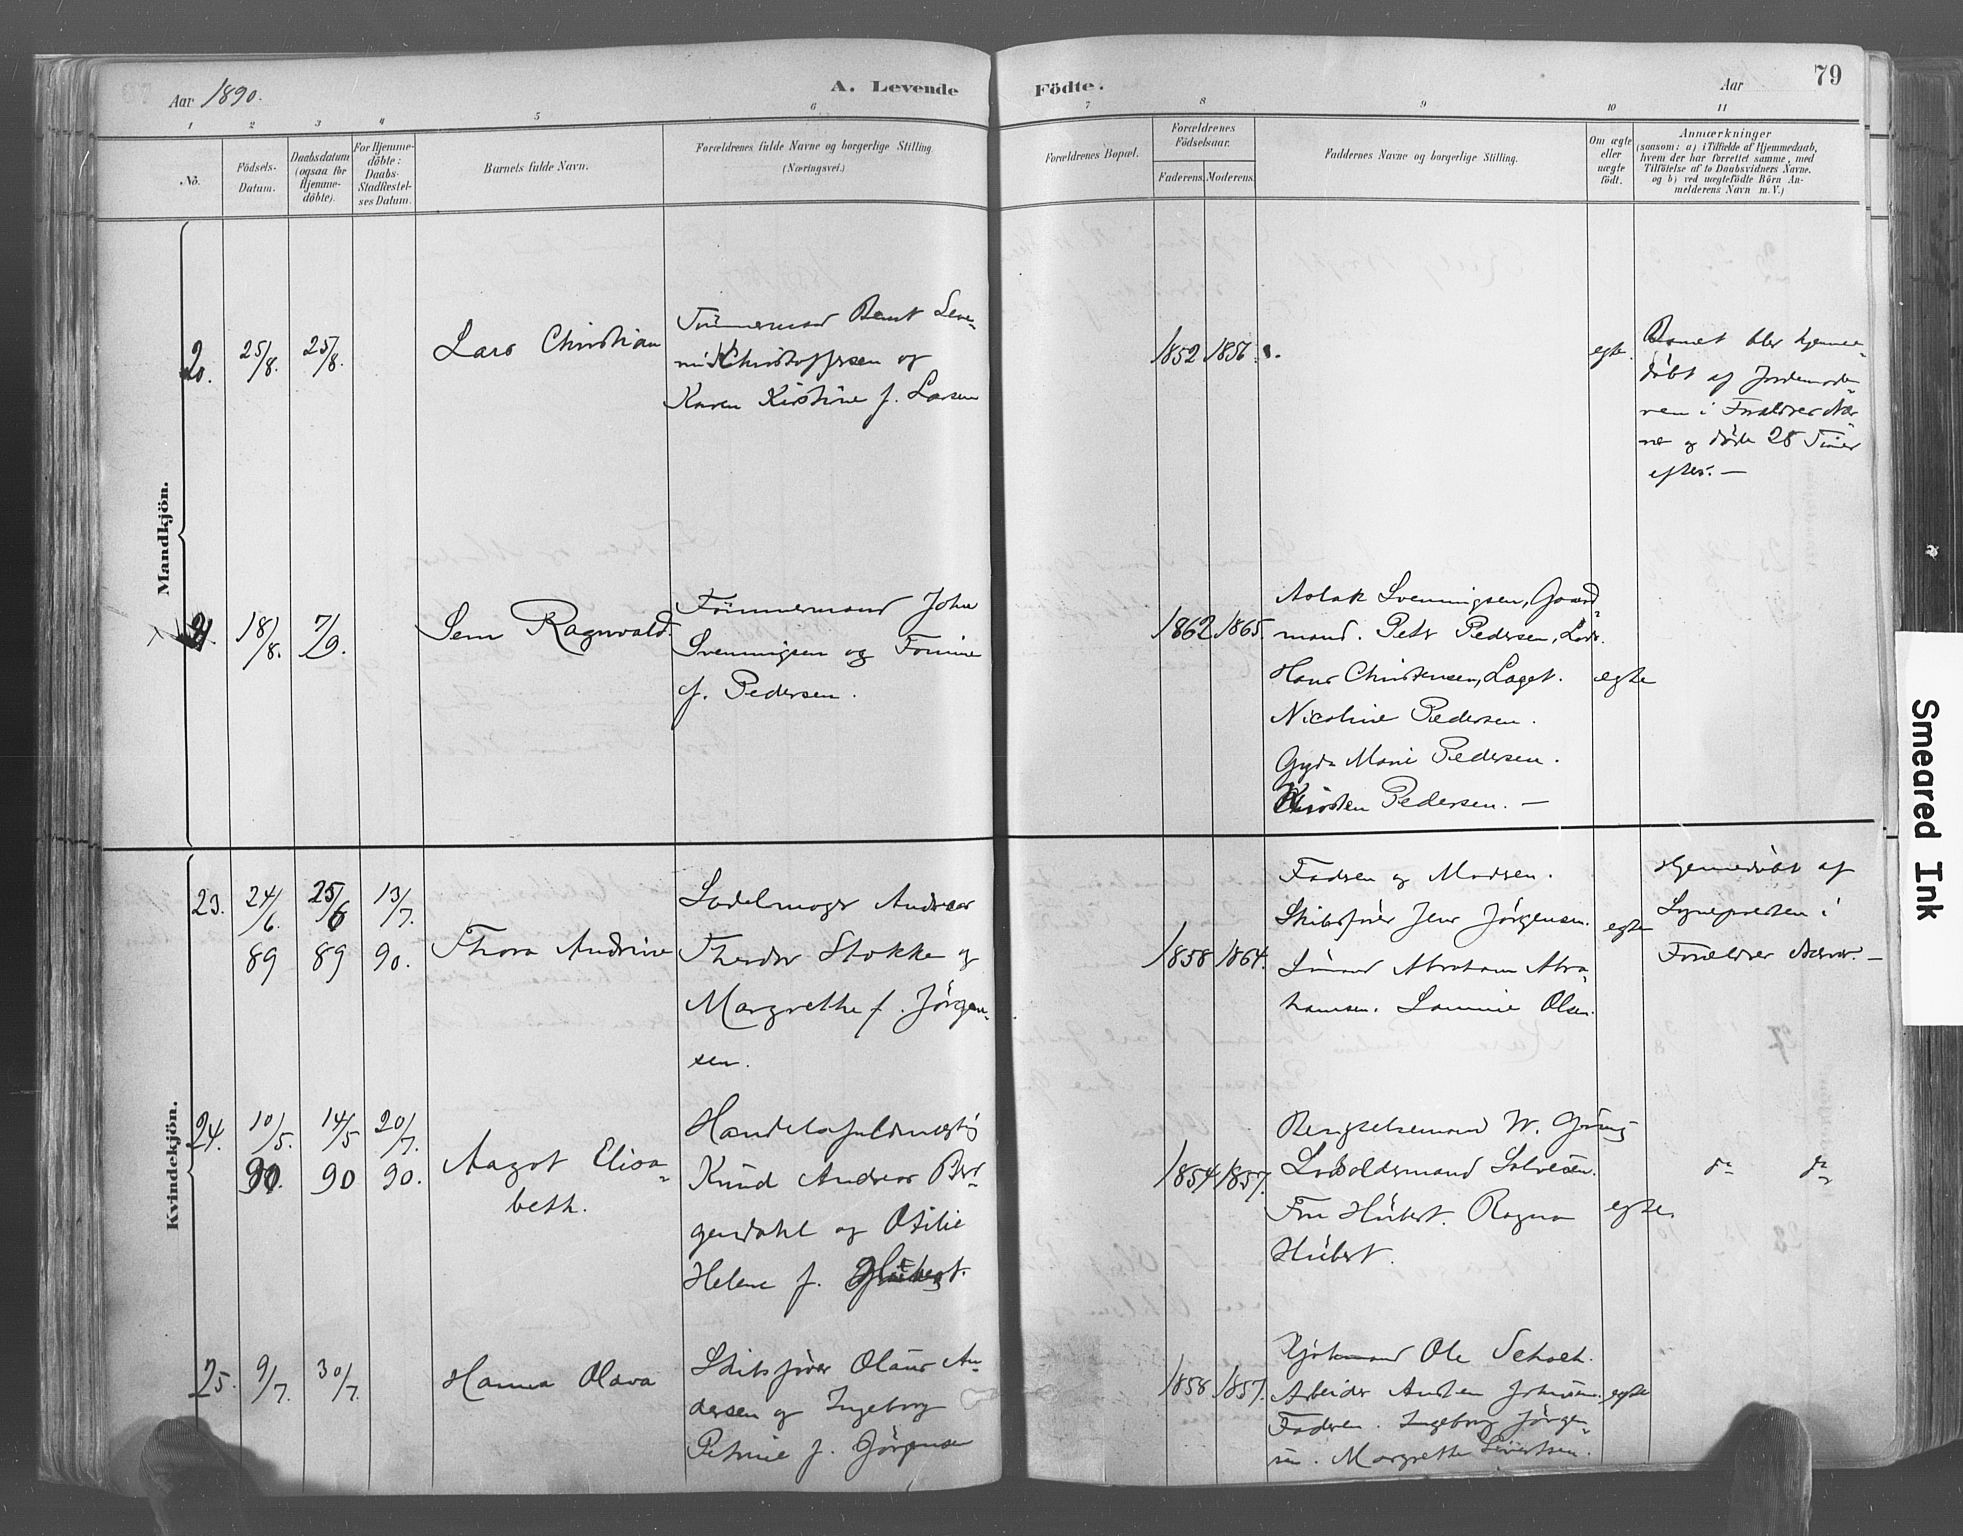 Aar 1890.
A. Levende
Födte.
Aar
79
1 2 3 4 5 6 7 8 9 10 11
No.
Födsels-
Datum.
Daabsdatum
(ogsaa for
Hjemme-
döbte).
For Hjemme-
döbte:
Daabs-
Stadfæstel-
ses Datum.
Barnets fulde Navn.
Forældrenes fulde Navne og borgerlige Stilling.
(Næringsvei.)
Forældrenes Bopæl.
Forældrenes
Födselsaar.
Faderens.
Moderens.
Faddernes Navne og borgerlige Stilling.
Om ægte
eller
uægte
födt.
Anmærkninger
(saasom: a) i Tilfælde af Hjemmedaab,
hvem der har forrettet samme, med
Tilföielse af to Daabsvidners Navne.
og b) ved uægtefödte Börn An-
melderens Navn m. V.)
Mandkjön.
20.
25/8.
25/8.
Lars Christian
Tömmermand Bernt Leve-
Christoffersen og
Karen Kirstine f. Larsen
1852
1856
egte.
Barnet blev hjemme-
döbt af Jordemode-
ren i Forældres Nær-
vær og döde 28 Timer
efter. —
21.
18/8.
7/9.
Sem Ragnvald.
Tömmermand John
Svenningsen og Tomine
f. Pedersen.
1862
1865.
Aslak Svenningsen, Gaard-
mand. Peter Pedersen, Lods.
Hans Christensen, Laget.
Nicoline Pedersen.
Gyda Marie Pedersen.
Kirsten Pedersen. —
egte
Kvindekjön.
23.
24/6.
89
25/6
89
13/7.
90.
Thora Andrine
Sadelmager Andreas
Theodor Stokke og
Margrethe f. Jörgen-
sen.
1858
1864.
Fadren og Modren.
Skibsförer Jens Jörgensen.
Sömand Abraham Abra-
hamsen. Olsen.
egte
Hjemmedöbt af
Sognepresten i
Forældres Nærvær. —
24.
10/5.
90.
14/5
90
20/7.
90.
Aagot Elisa-
beth.
Handelsfuldmægtig
Knud Andreas Ber-
gendahl og Otilie
Helene f.
1854
1857.
W.
Salvesen.
Fru Hübert. Ragna
Hübert.
egte.
25.
9/7.
30/7.
Hanna Olava
Skibsförer Olaus An-
dersen og Ingeborg
Petrine f. Jörgensen
1858
1857.
Ole
Arbeider
Faderen. Ingeborg Jörgen-
sen. Margrethe Sivertsen.
egte
Smeared Ink